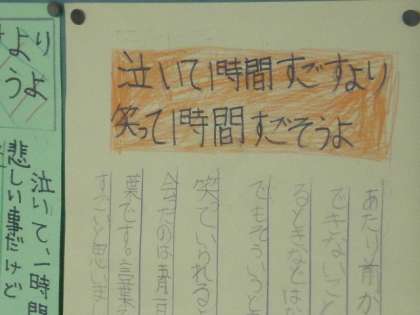 泣いて1時間すごすより
笑って1時間すごそうよ
あたり前か
できないこと
るときなどはな
でもそういうと
笑っていられると
今えたのは青百
葉です。言葉
すごいと思いまし
より
うよ
泣いて、一時間
悲しい事だけど